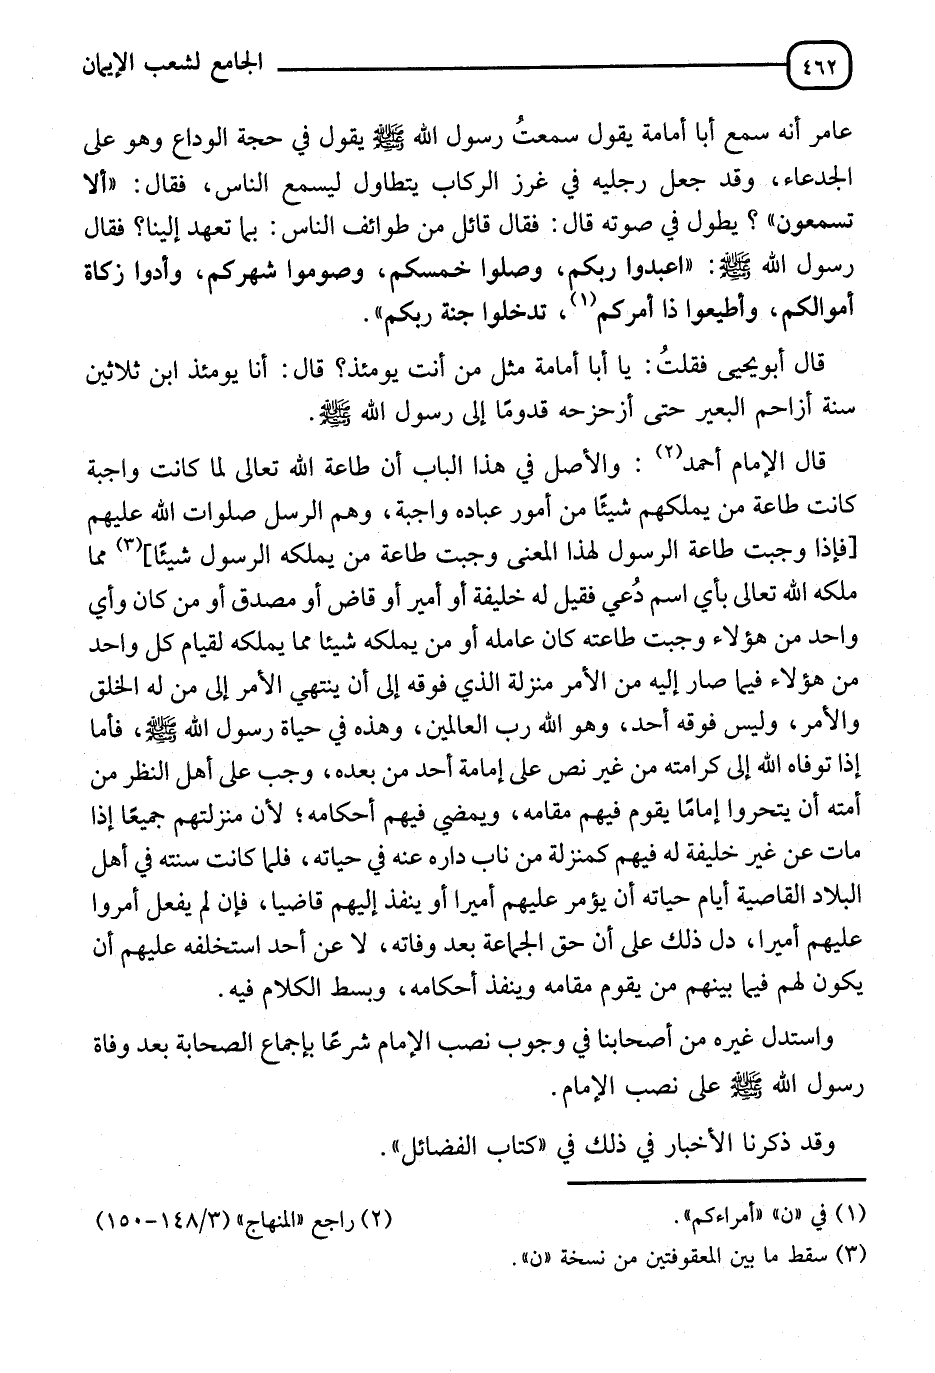 ٤٦٢ الجامع لشعب الإيمان
عامر أنه سمع أبا أمامة يقول سمعتُ رسول الله ﷺ يقول في حجة الوداع وهو على
الجدعاء، وقد جعل رجليه في غرز الركاب يتطاول ليسمع الناس، فقال: «ألا
تسمعون» ؟ يطول في صوته قال: فقال قائل من طوائف الناس: بما تعهد إلينا؟ فقال
رسول الله ﷺ: «اعبدوا ربكم، وصلوا خمسكم، وصوموا شهركم، وأدوا زكاة
أموالكم، وأطيعوا ذا أمركم(١)، تدخلوا جنة ربكم».
قال أبويحيى فقلتُ: يا أبا أمامة مثل من أنت يومئذ؟ قال: أنا يومئذ ابن ثلاثين
سنة أزاحم البعير حتى أزحزحه قدومًا إلى رسول الله ﷺ.
قال الإمام أحمد(٢) : والأصل في هذا الباب أن طاعة الله تعالى لما كانت واجبة
كانت طاعة من يملكهم شيئًا من أمور عباده واجبة، وهم الرسل صلوات الله عليهم
[فإذا وجبت طاعة الرسول لهذا المعنى وجبت طاعة من يملكه الرسول شيئًا](٣) مما
ملكه الله تعالى بأي اسم دُعي فقيل له خليفة أو أمير أو قاض أو مصدق أو من كان وأي
واحد من هؤلاء وجبت طاعته كان عامله أو من يملكه شيئا مما يملكه لقيام كل واحد
من هؤلاء فيما صار إليه من الأمر منزلة الذي فوقه إلى أن ينتهي الأمر إلى من له الخلق
والأمر، وليس فوقه أحد، وهو الله رب العالمين، وهذه في حياة رسول الله ﷺ، فأما
إذا توفاه الله إلى كرامته من غير نص على إمامة أحد من بعده، وجب على أهل النظر من
أمته أن يتحروا إمامًا يقوم فيهم مقامه، ويمضي فيهم أحكامه؛ لأن منزلتهم جميعًا إذا
مات عن غير خليفة له فيهم كمنزلة من ناب داره عنه في حياته، فلما كانت سنته في أهل
البلاد القاصية أيام حياته أن يؤمر عليهم أميرا أو ينفذ إليهم قاضيا، فإن لم يفعل أمروا
عليهم أميرا، دل ذلك على أن حق الجماعة بعد وفاته، لا عن أحد استخلفه عليهم أن
يكون لهم فيما بينهم من يقوم مقامه وينفذ أحكامه، وبسط الكلام فيه.
واستدل غيره من أصحابنا في وجوب نصب الإمام شرعًا بإجماع الصحابة بعد وفاة
رسول الله ﷺ على نصب الإمام.
وقد ذكرنا الأخبار في ذلك في «كتاب الفضائل».
(١) في «ن» «أمراءكم». (٢) راجع «المنهاج» (٣/١٤٨-١٥٠)
(٣) سقط ما بين المعقوفتين من نسخة «ن».